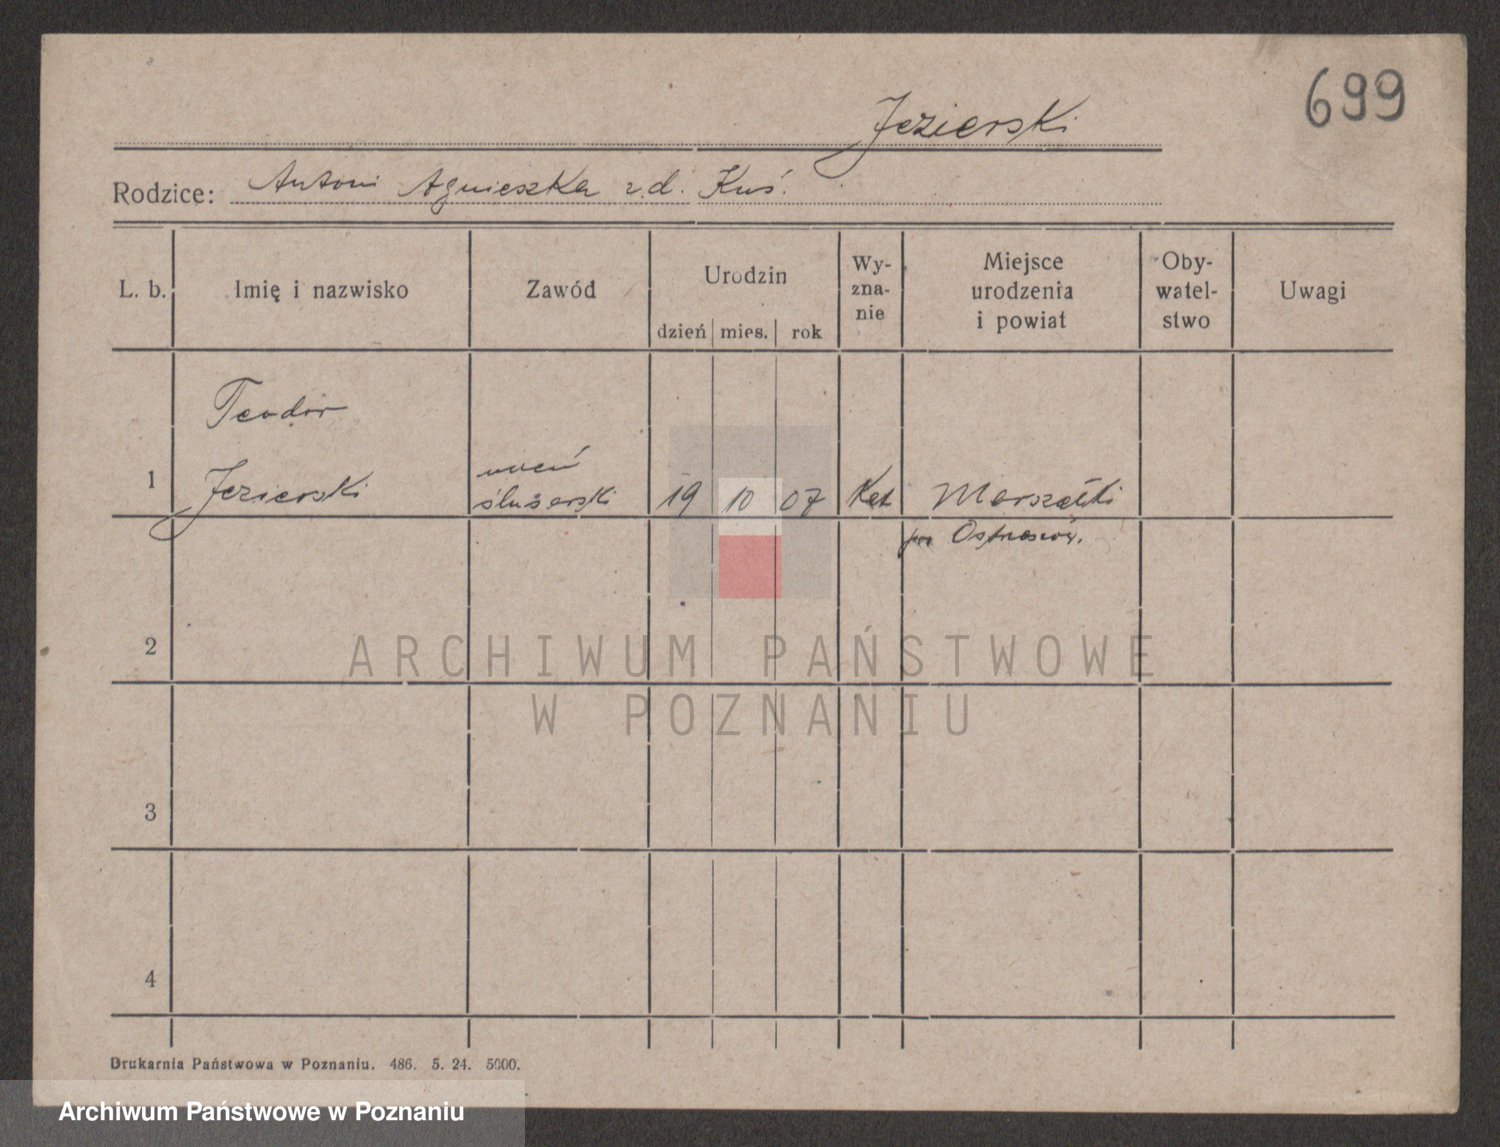 699
Jezierski
Rodzice: Antoni Agnieszka z d. Kuś.
L. b. Imię i nazwisko Zawód Urodzin Wy-zna-nie Miejsce urodzenia i powiat Oby-watel-stwo Uwagi
dzień mies. rok
Teodor
1 Jezierski uczeń ślusarski 19 10 07 Kat Marszałki
Ostrzeszów.
2
ARCHIWUM PAŃSTWOWE
W POZNANIU
3
4
Drukarnia Państwowa w Poznaniu. 486. 5. 24. 5000.
Archiwum Państwowe w Poznaniu